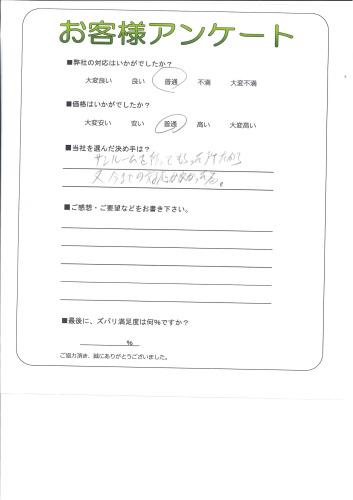 お客様アンケート
■弊社の対応はいかがでしたか？
大変良い 良い 普通 不満 大変不満
■価格はいかがでしたか？
大変安い 安い 普通 高い 大変高い
■当社を選んだ決め手は？
サンルームを作ってもらった
又、今までの対応が良かった為。
■ご感想・ご要望などをお書き下さい。
■最後に、ズバリ満足度は何%ですか？
%
ご協力頂き、誠にありがとうございました。